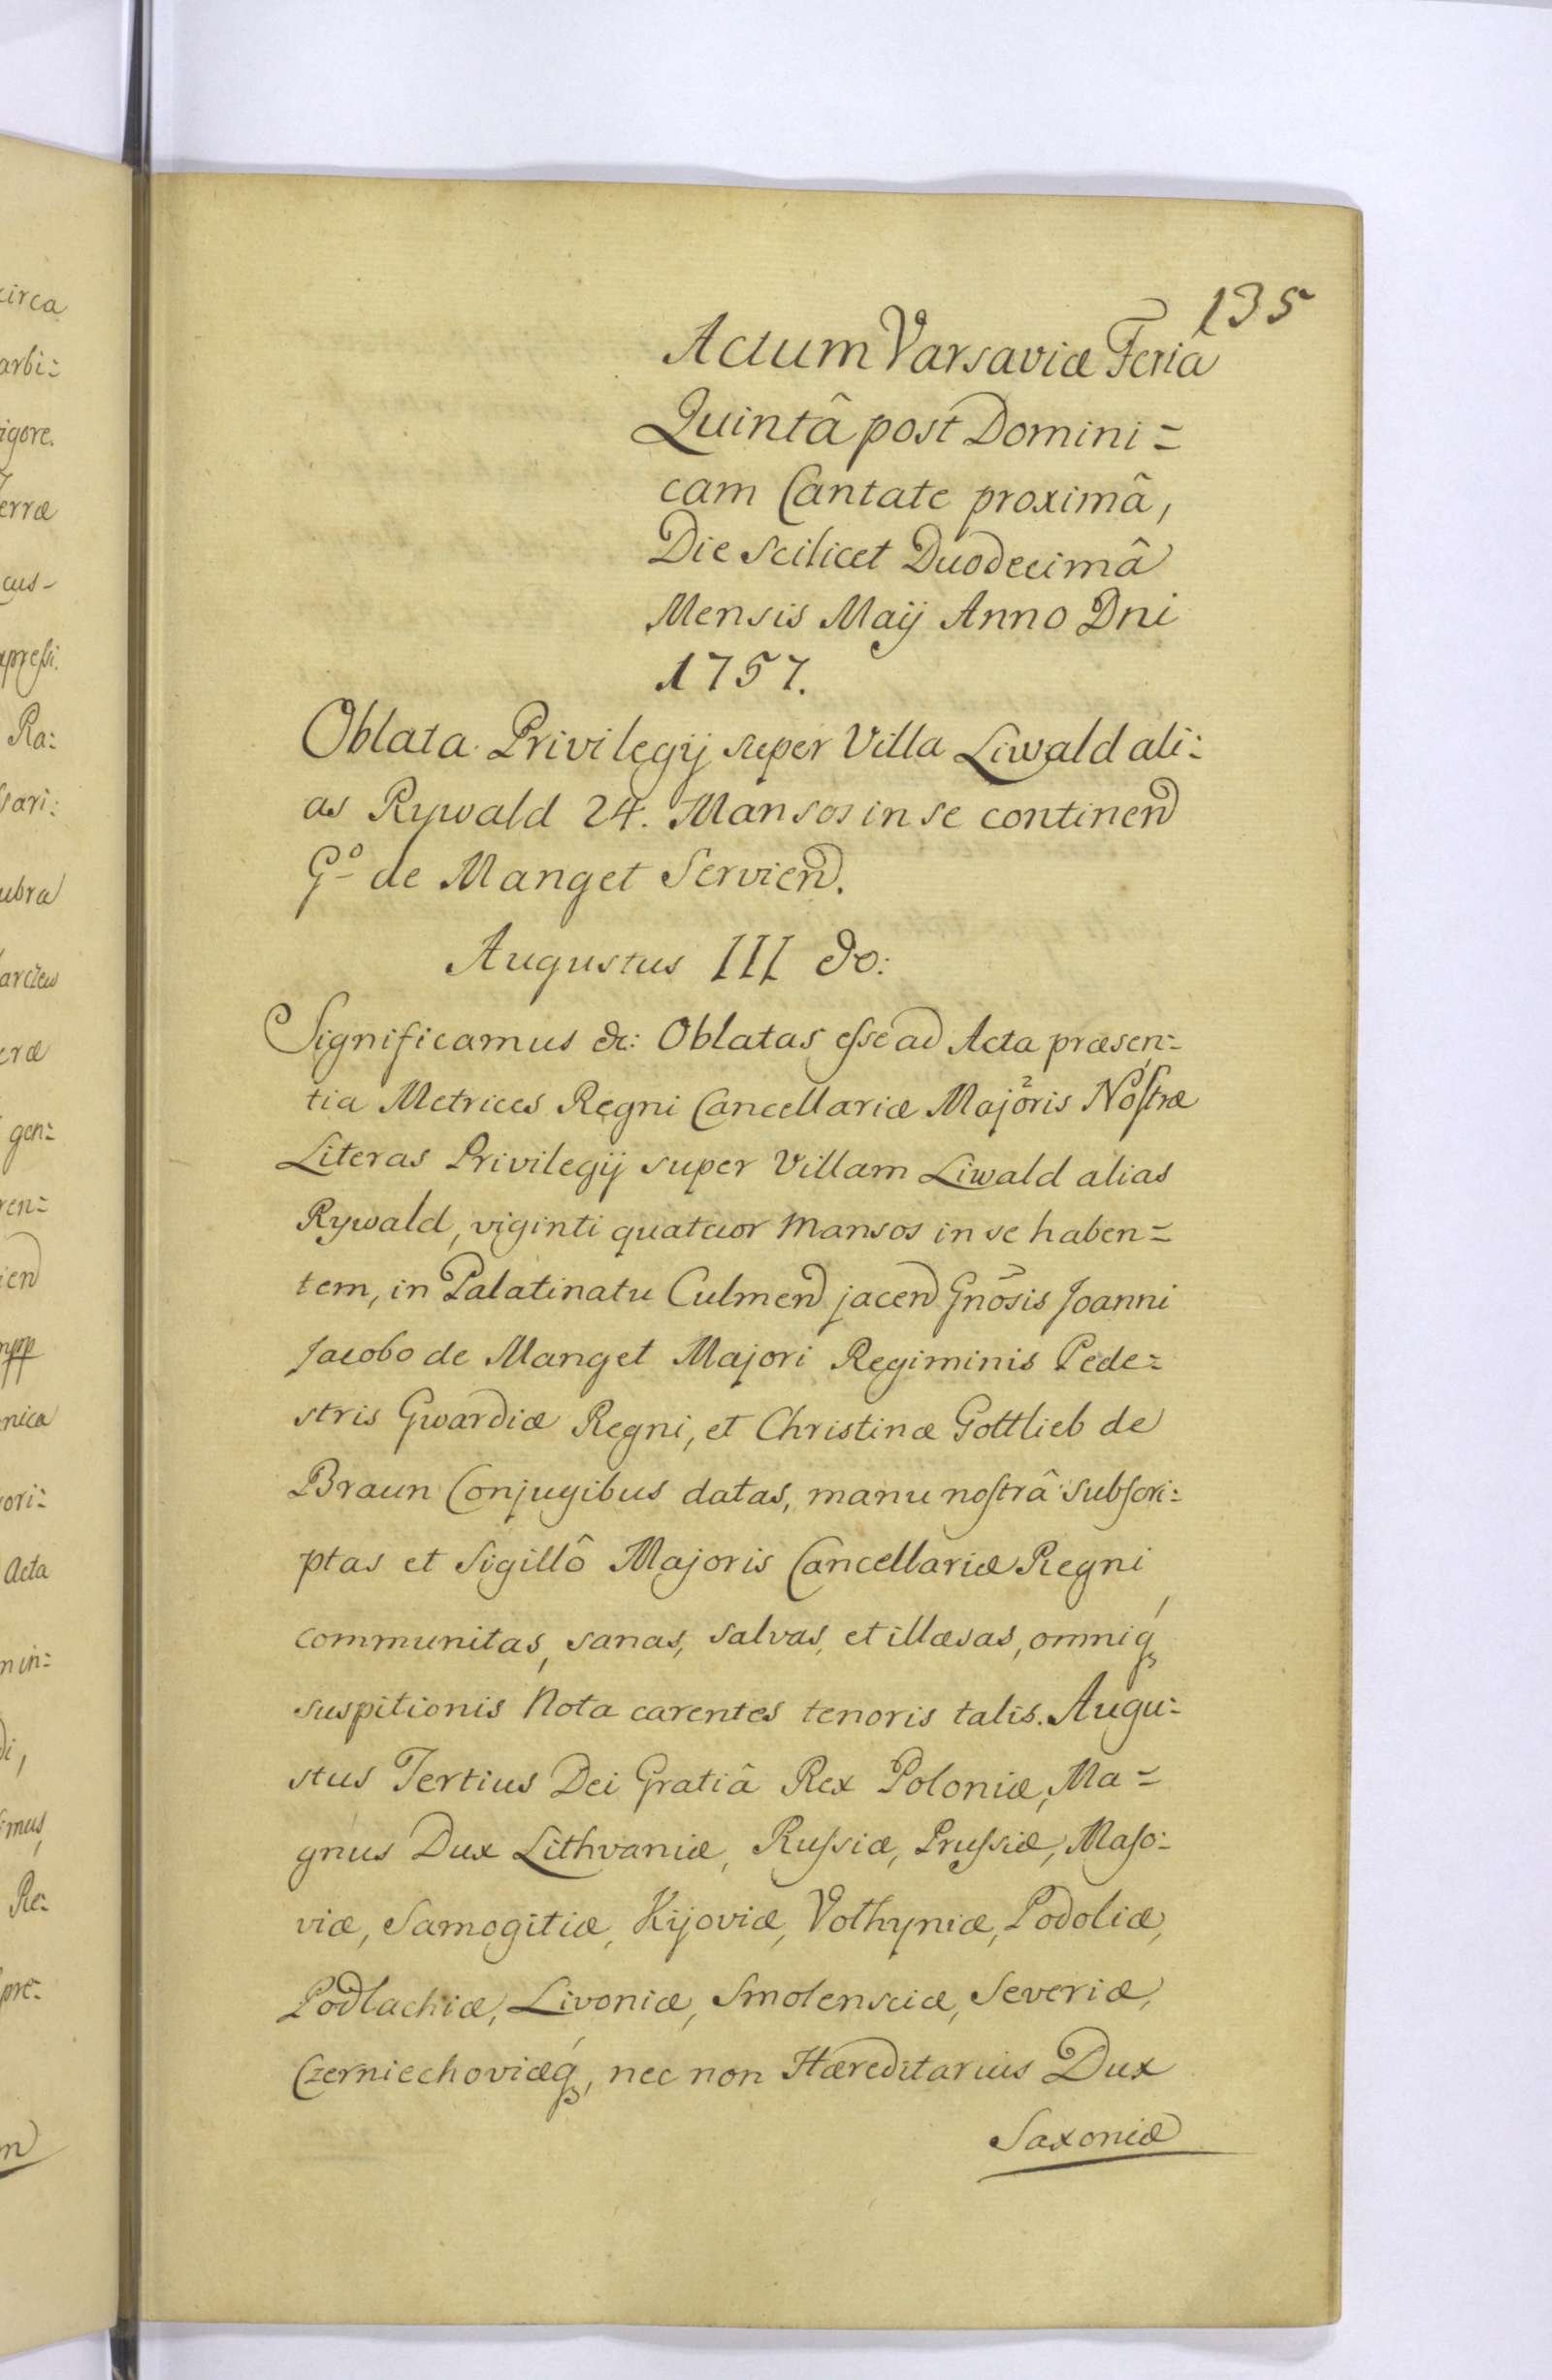 135
Actum Varsaviæ Feria
Quintâ post Domini=
cam Cantate proximâ,
Die scilicet Duodecimâ
Mensis Maij Anno Dni
1757.
Oblata Privilegij super Villa Liwald ali=
as Rywald 24. Mansos in se continen
Go de Manget Servien.
Augustus III &c:
Significamus &c: Oblatas esse ad Acta præsen=
tia Metrices Regni Cancellariæ Majoris Nostræ
Literas Privilegij super Villam Liwald alias
Rywald, viginti quatuor Mansos in se haben=
tem, in Palatinatu Culmen jacen Gnosis Joanni
Jacobo de Manget Majori Regiminis Pede=
stris Gwardiæ Regni, et Christinæ Gottlieb de
Braun Conjugibus datas, manu nostrâ subscri=
ptas et Sigillô Majoris Cancellariæ Regni
communitas, sanas, salvas, et illæsas, omniq
suspitionis Nota carentes tenoris talis. Augu=
stus Tertius Dei Gratiâ Rex Poloniæ, Ma=
gnus Dux Lithvaniæ, Russiæ, Prussiæ, Maso=
viæ, Samogitiæ, Kijoviæ, Volhyniæ, Podoliæ,
Podlachiæ, Livoniæ, Smolensciæ, Severiæ,
Czerniechoviæq, nec non Hæreditarius Dux
Saxoniæ